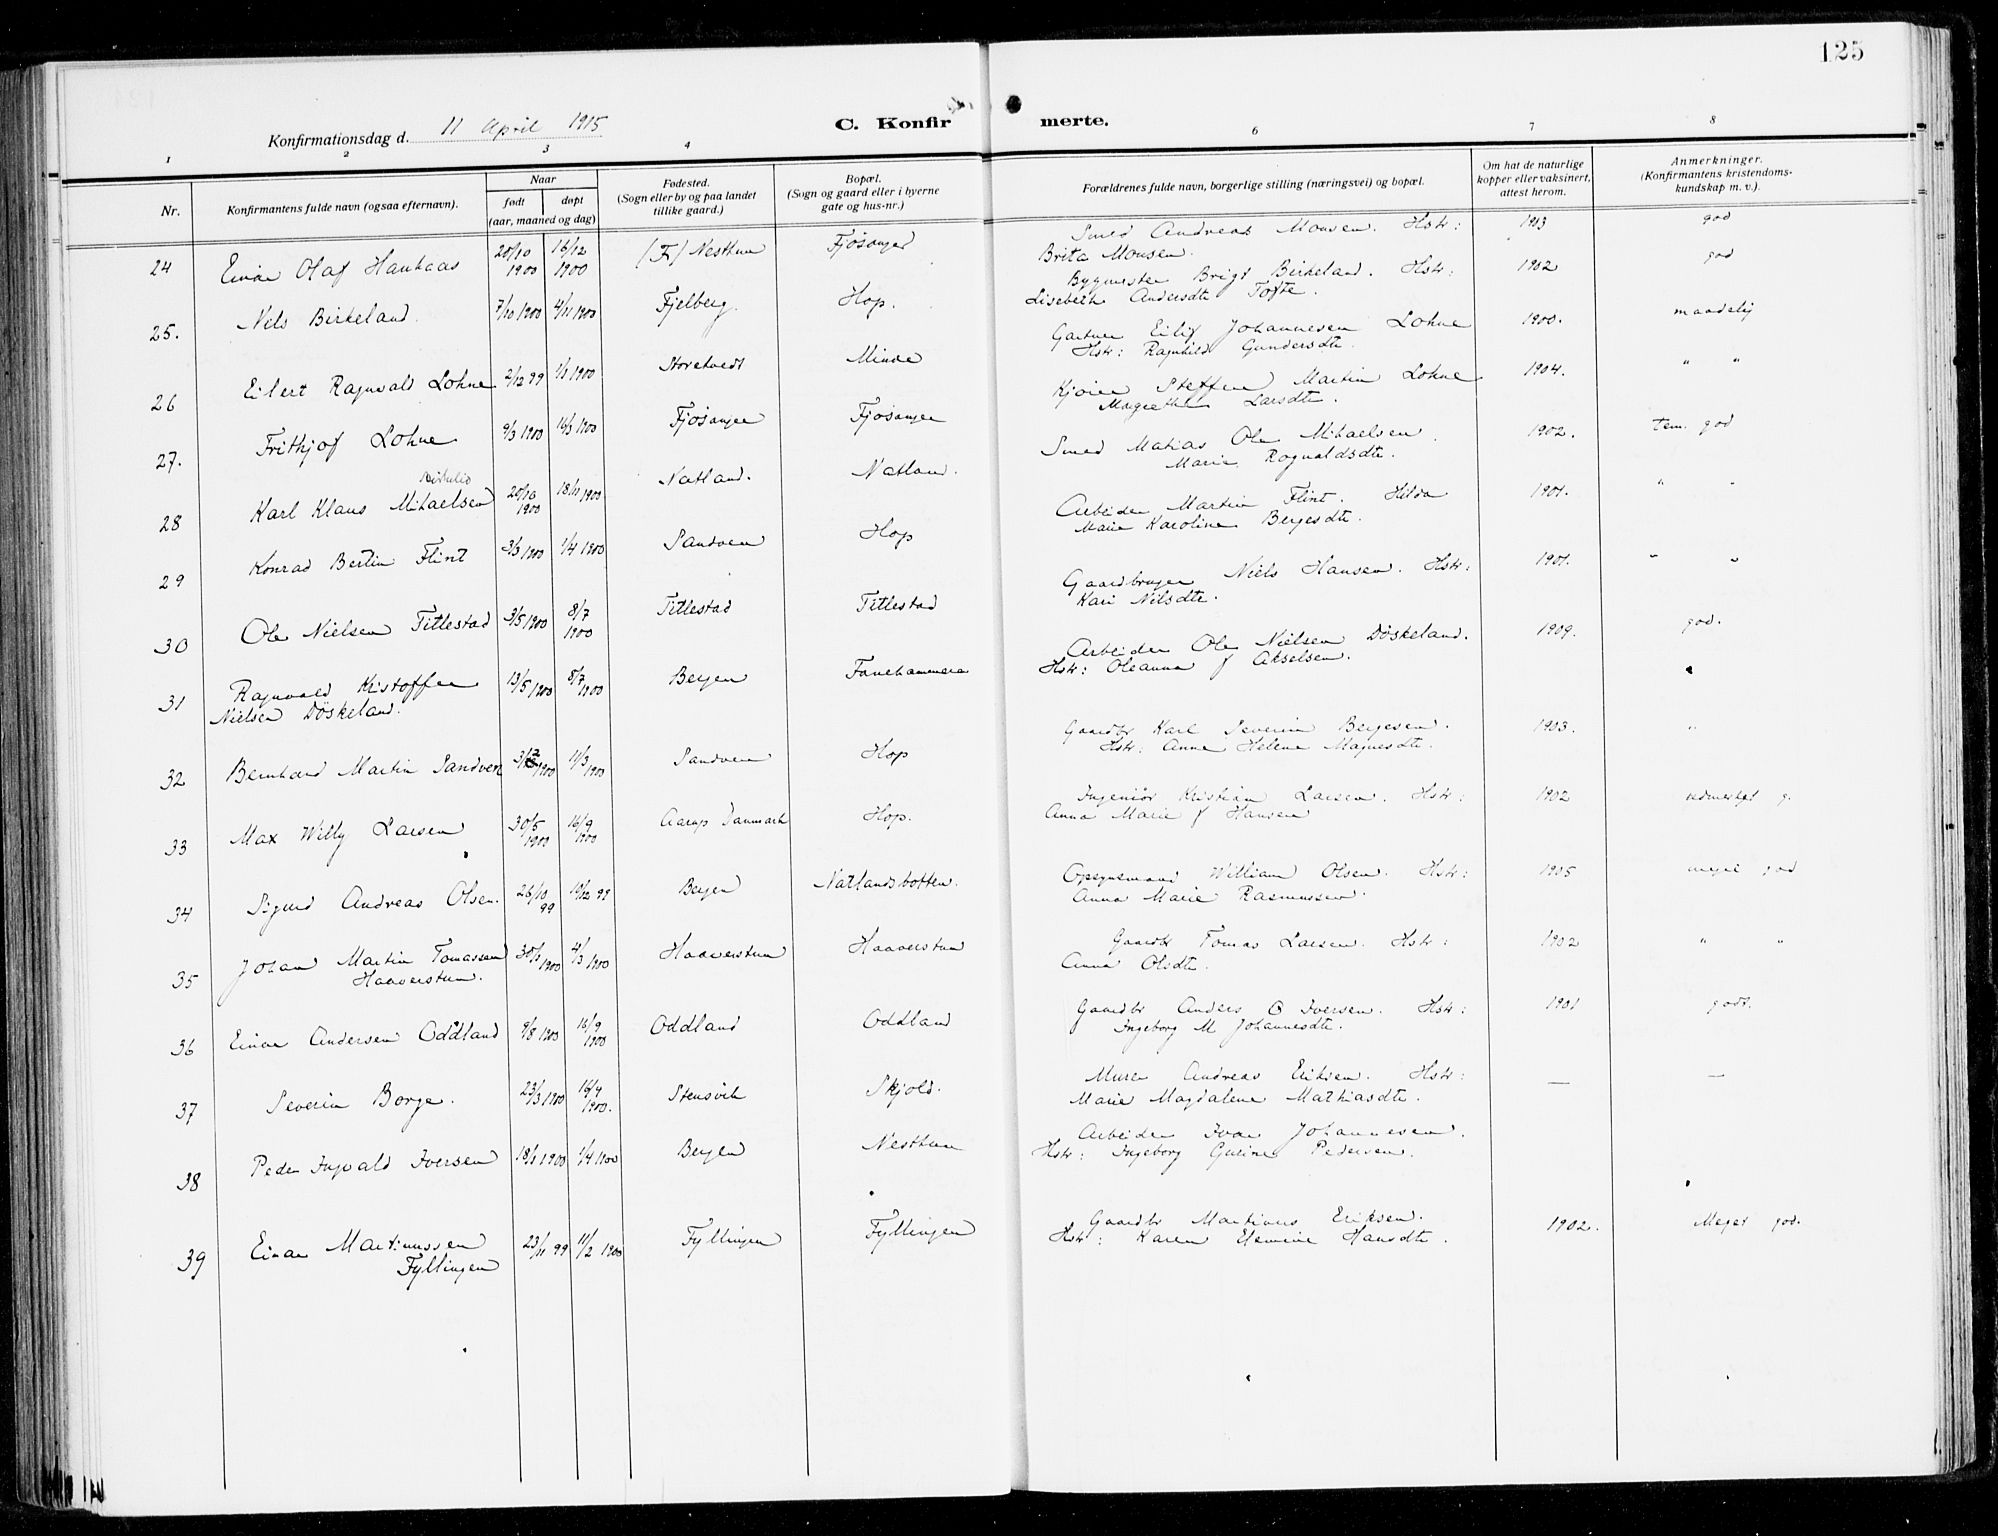 125
Konfirmationsdag d. 11 April 1915
C. Konfirmerte.
1 2 3 4 6 7 8
Nr.
Konfirmantens fulde navn (ogsaa efternavn).
Naar
født
døpt
(aar, maaned og dag)
Fødested.
(Sogn eller by og paa landet
tillike gaard.)
Bopæl.
(Sogn og gaard eller i byerne
gate og hus-nr.)
Forældrenes fulde navn, borgerlige stilling (næringsvei) og bopæl.
Om hat de naturlige
kopper eller vaksinert,
attest herom.
Anmerkninger.
(Konfirmantens kristendoms-
kundskap m. v.).
24 Einar Olaf Haukaas 20/10 1900 16/12 1900 (F) Nesttun Fjøsanger Smed Andreas Monsen. Hstr: 1913 god
Brita Monsen.
25. Nels Birkeland. 7/10 1900 4/11 1900 Fjelberg. Hop. Bygmester Brigt Birkeland. Hstr: 1902 god
Lisebeth Andersdtr Tofte.
26 Eilert Ragnvald Lohne 2/12 99 1/1 1900 Storetvedt Minde Gartner Eilif Johannesen Lohne 1900. maadelig
Hstr: Ragnhild Gundersdtr.
27. Frithjof Lohne 9/3 1900 Fjøsanger Fjøsanger Kjører Steffen Martin Lohne 1904. " "
Margrethe Larsdtr.
28 Karl Klaus Mikaelsen 20/10 1900 18/11 1900 Natland. Natland. Smed Matias Ole Mikaelsen. 1902. tem. god
Marie Rognaldsdtr.
29 Konrad Bertin Flint 3/3 1900 1/4 1900 Sandven Hop Arbeider Martin Flint. Hilda 1901. " "
Marie Karoline Bergesdtr.
30 Ole Nielsen Titlestad 3/5 1900 8/7 1900 Titlestad Titlestad Gaardbruger Niels Hansen. Hstr: 1901. " "
Kari Nilsdtr.
31 Ragnvald Kristoffer 13/5 1900 8/7 1900 Bergen Fanehammeren Arbeider Ole Nielsen Døskeland. 1909. god.
Nielsen Døskeland. Hstr: Oleanna f Akselsen.
32 Bernhard Martin Sandven 1900 11/3 1900 Sandven Hop Gaardbr Karl Severin Bergesen. 1903. "
Hstr: Anne Helene Magnesdtr.
33 Max Willy Larsen 30/5 1900 16/9 1900 Aarup Danmark Hop. Ingeniør Kristian Larsen. Hstr: 1902 udmerket g.
Anna Marie f Hansen
34 Sigurd Andreas Olsen. 26/10 99 10/12 99 Bergen Natlandsbotten. Opsynsmand William Olsen. Hstr: 1905 meget god
Anna Marie Rasmussen.
35 Johan Martin Tomassen 30/1 1900 4/3 1900 Haaverstun Haaverstun Gaardbr Tomas Larsen. Hstr: 1902 " "
Haaverstun. Anna Olsdtr.
36 Einar Andersen Oddland 9/8 1900 16/9 1900 Oddland Oddland Gaardbr Anders O Iversen. Hstr: 1901 godt.
Ingeborg M Johannesdtr.
37 Severin Borge. 23/3 1900 16/4 1900. Stensvik Skjold. Murer Andreas Eriksen. Hstr: — —
Marie Magdalene Mathiasdtr.
38 Peder Ingvald Iversen 18/1 1900 1/4 1900 Bergen Nesttun Arbeider Ivar Johannesen.
Hstr: Ingeborg Gurine Pedersen.
39 Einar Martinussen 23/11 99 11/2 1900 Fyllingen Fyllingen Gaardbr Martinus Eriksen. 1902. Meget god.
Fyllingen Hstr: Karen Elemine Hansdtr.